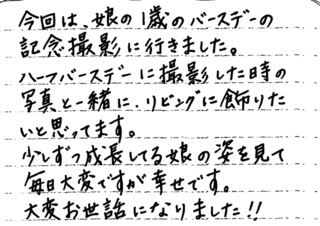 今回は、娘の1歳のバースデーの
記念撮影に行きました。
ハーフバースデーに撮影した時の
写真と一緒に、リビングに飾りた
いと思ってます。
少しずつ成長してる娘の姿を見て
毎日大変ですが幸せです。
大変お世話になりました!!